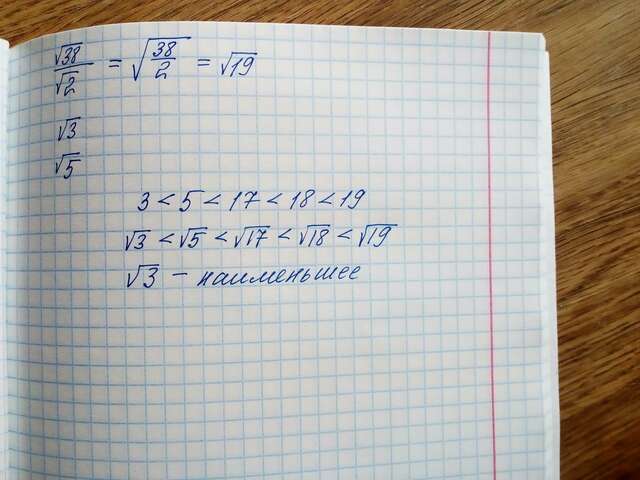 √38/√2 = √(38/2) = √19
√3
√5
3 < 5 < 17 < 18 < 19
√3 < √5 < √17 < √18 < √19
√3 – наименьшее